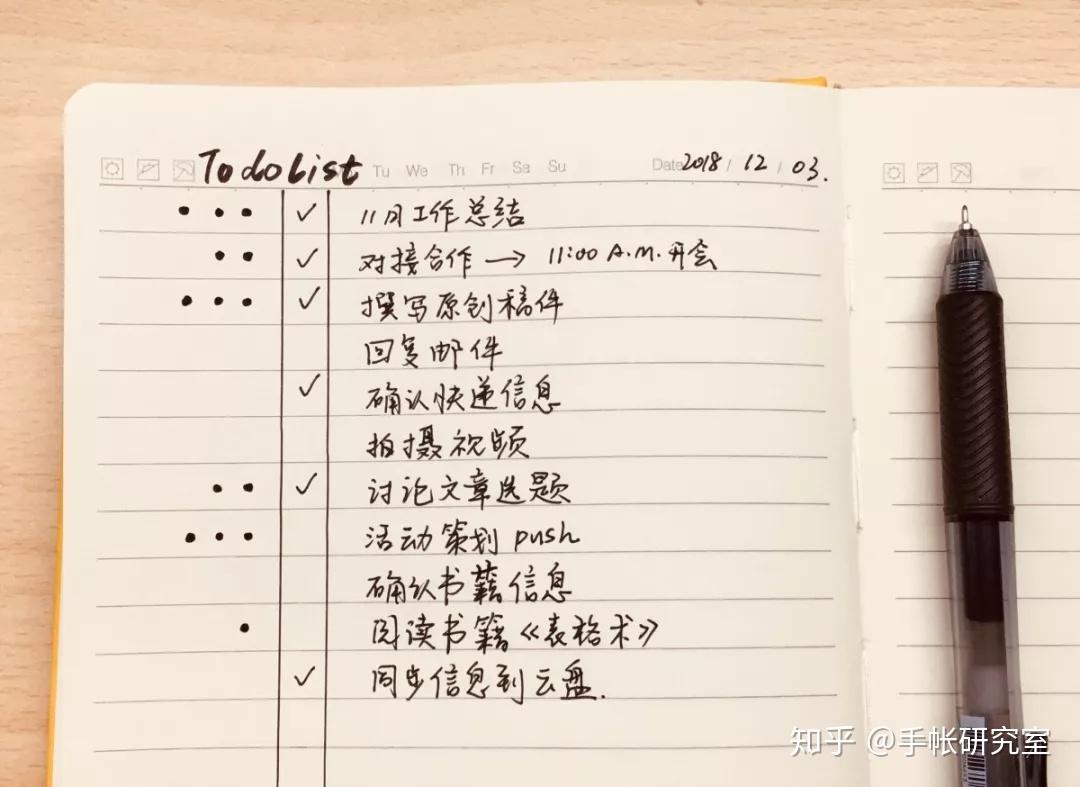 To do List Tu We Th Fr Sa Su Date 2018 / 12 / 03.
••• ✓ 11月工作总结
•• ✓ 对接合作 → 11:00 A.M. 开会
••• ✓ 撰写原创稿件
回复邮件
✓ 确认快递信息
拍摄视频
•• ✓ 讨论文章选题
••• 活动策划 push
确认书籍信息
• 阅读书籍《表格术》
✓ 同步信息到云盘.
知乎 @手帐研究室